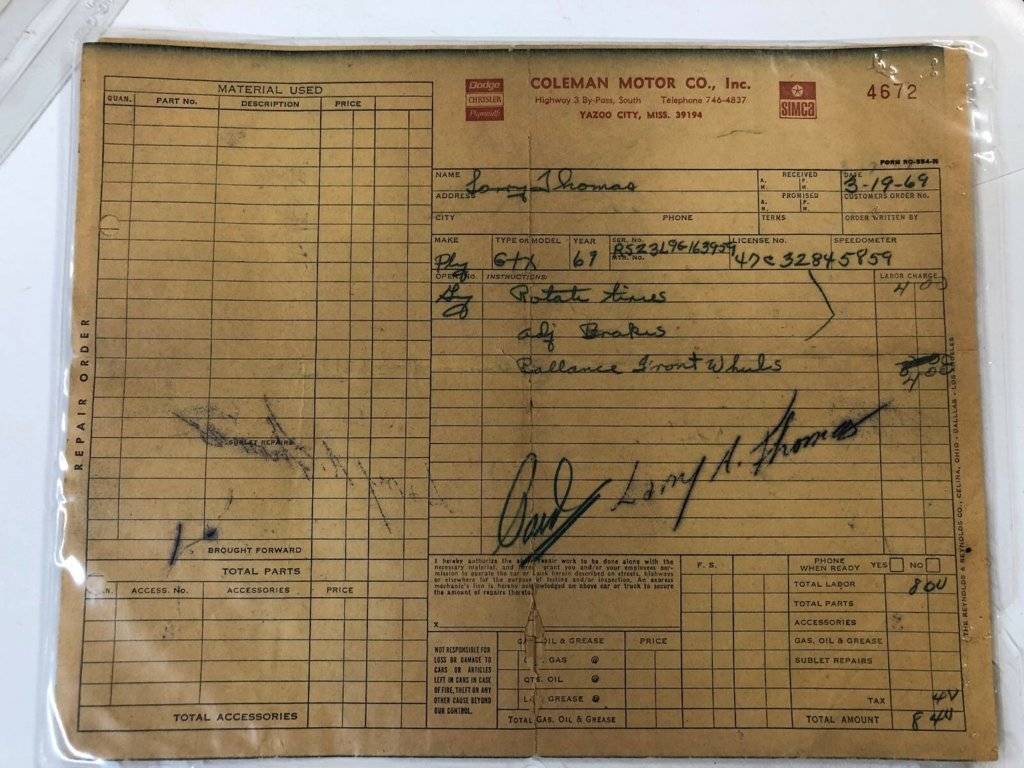 MATERIAL USED
QUAN. PART No. DESCRIPTION PRICE
Dodge
CHRYSLER
Plymouth
COLEMAN MOTOR CO., Inc.
Highway 3 By-Pass, South Telephone 746-4837
YAZOO CITY, MISS. 39194
SIMCA
4672
FORM RO-554-N
NAME Larry Thomas
RECEIVED A.M. P.M.
DATE 3-19-69
ADDRESS
PROMISED A.M. P.M.
CUSTOMERS ORDER No.
CITY PHONE TERMS ORDER WRITTEN BY
MAKE TYPE OR MODEL YEAR SER. No. LICENSE No. SPEEDOMETER
Ply GTX 69 RS23L9G163959 47C3284 5859
MTR. No.
OPER. No. INSTRUCTIONS: LABOR CHARGE
Rotate tires 4 00
adj Brakes
Ballance Front Wheels
4 00
REPAIR ORDER
SUBLET REPAIRS
Paid Larry A. Thomas
BROUGHT FORWARD
TOTAL PARTS
QUAN. ACCESS. No. ACCESSORIES PRICE
TOTAL ACCESSORIES
I hereby authorize the above repair work to be done along with the
necessary material, and grant you and/or your employees per-
mission to operate the car or truck herein described on streets, highways
or elsewhere for the purpose of testing and/or inspection. An express
mechanic's lien is hereby acknowledged on above car or truck to secure
the amount of repairs thereto.
X
NOT RESPONSIBLE FOR
LOSS OR DAMAGE TO
CARS OR ARTICLES
LEFT IN CARS IN CASE
OF FIRE, THEFT OR ANY
OTHER CAUSE BEYOND
OUR CONTROL.
GAS, OIL & GREASE PRICE
GAS @
QTS. OIL @
GREASE @
TOTAL GAS, OIL & GREASE
F. S.
PHONE WHEN READY YES NO
TOTAL LABOR 8 00
TOTAL PARTS
ACCESSORIES
GAS, OIL & GREASE
SUBLET REPAIRS
TAX 40
TOTAL AMOUNT 8 40
THE REYNOLDS & REYNOLDS CO., CELINA, OHIO - DALLAS - LOS ANGELES